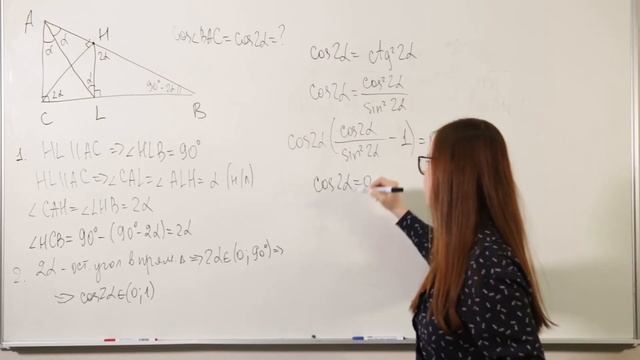 A
H
cos∠BAC = cos2α = ?
α
α
2α
α
2α
90° - 2α
C
L
B
1. HL || AC ⇒ ∠HLB = 90°
HL || AC ⇒ ∠CAL = ∠ALH = α (н/л)
∠CAH = ∠LHB = 2α
∠HCB = 90° - (90° - 2α) = 2α
2. 2α - ост. угол в прям. Δ ⇒ 2α ∈ (0; 90°) ⇒
⇒ cos2α ∈ (0; 1)
cos2α = ctg²2α
cos2α = cos²2α / sin²2α
cos2α (cos2α / sin²2α - 1) =
cos2α = 0